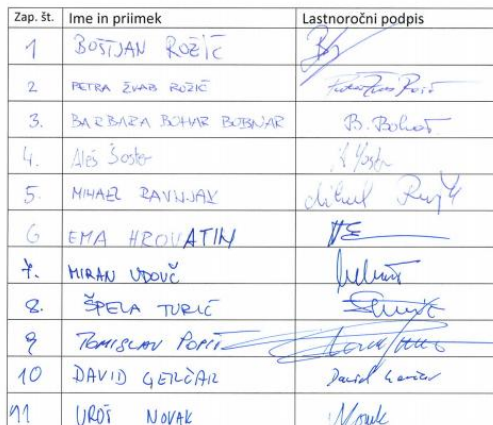 Zap. št. Ime in priimek Lastnoročni podpis
1 BOŠTJAN ROŽIČ
2 PETRA ŽVAB ROŽIČ
3. BARBARA BOHAR BOBNAR B. Bohar
4. Aleš Šoster A Šoster
5. MIHAEL RAVNJAK Mihael
6 EMA HROVATIN HE
7. MIRAN UDOVČ
8. ŠPELA TURIĆ
9 TOMISLAV POPIT
10 DAVID GERČAR David Gerčar
11 UROŠ NOVAK Novak